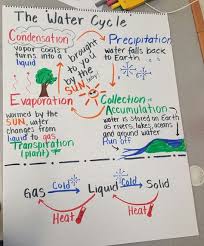 The Water Cycle
Condensation
vapor cools &
turns into a
liquid
brought
to you
by the
SUN
Precipitation
water falls back
to Earth
Evaporation
warmed by the
SUN, water
changes from
liquid to gas
Transpiration
(plant)
Collection
Accumulation
water is stored on Earth
as rivers, lakes, oceans
and ground water
Run off
Gas Cold Liquid Cold Solid
Heat Heat